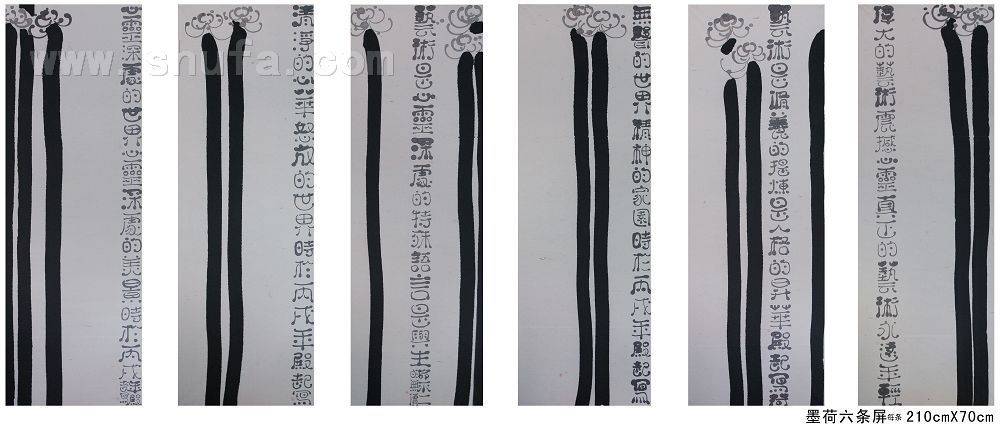 www.shufa.com
心靈深處的世界心靈深處的美景時於丙戌
清淨的心華怒放的世界時於丙戌年殿起寫
藝術是心靈深處的特殊語言是與生
無聲的世界精神的家園時於丙戌年殿起寫
藝術是脩養的提煉是人格的昇華殿起寫荷
偉大的藝術震撼心靈真正的藝術永遠年輕
墨荷六条屏每条 210cmX70cm